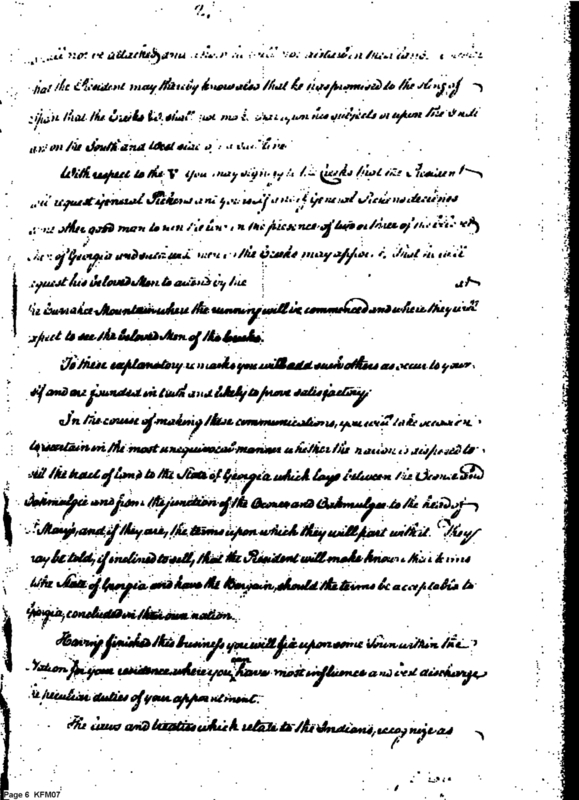 2.
not be attached and
that the President may thereby know also that he has promised to the King of
Spain that the Creeks &c. shall not make war upon his subjects or upon the Indi
ans on the South and West side of
With respect to the V you may signify to the Creeks that the President
will request General Pickens and yourself and if General Pickens declines
some other good man to run the line in the presence of two or three of the
Men of Georgia and such as the Creeks may appoint, that he will
request his beloved Men to attend by the at
the Currahee Mountain where the running will be commenced and where they will
expect to see the beloved Men of the Creeks.
To these explanatory remarks you will add such others as occur to your-
self and are founded in truth and likely to prove satisfactory.
In the course of making these communications, you will take occasion
to ascertain in the most unequivocal manner whether the nation is disposed to
sell the tract of land to the State of Georgia which lays between the Oconee and
Oakmulgie and from the junction of the Oconee and Oakmulgee to the head of
St Mary's, and if they are, the terms upon which they will part with it. They
may be told, if inclined to sell, that the President will make known their terms
to the State of Georgia and have the Bargain, should the terms be acceptable to
Georgia, concluded in their own nation.
Having finished this business you will fix upon some Town within the
Nation for your residence where you have most influence and best discharge
the peculiar duties of your appointment.
The laws and treaties which relate to the Indians, recognize as
Page 6 KFM07